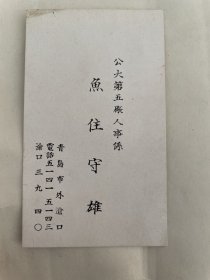 公大第五廠人事係
魚住守雄
青島市外滄口
電話五一四一 五一四三
滄口三九 四〇